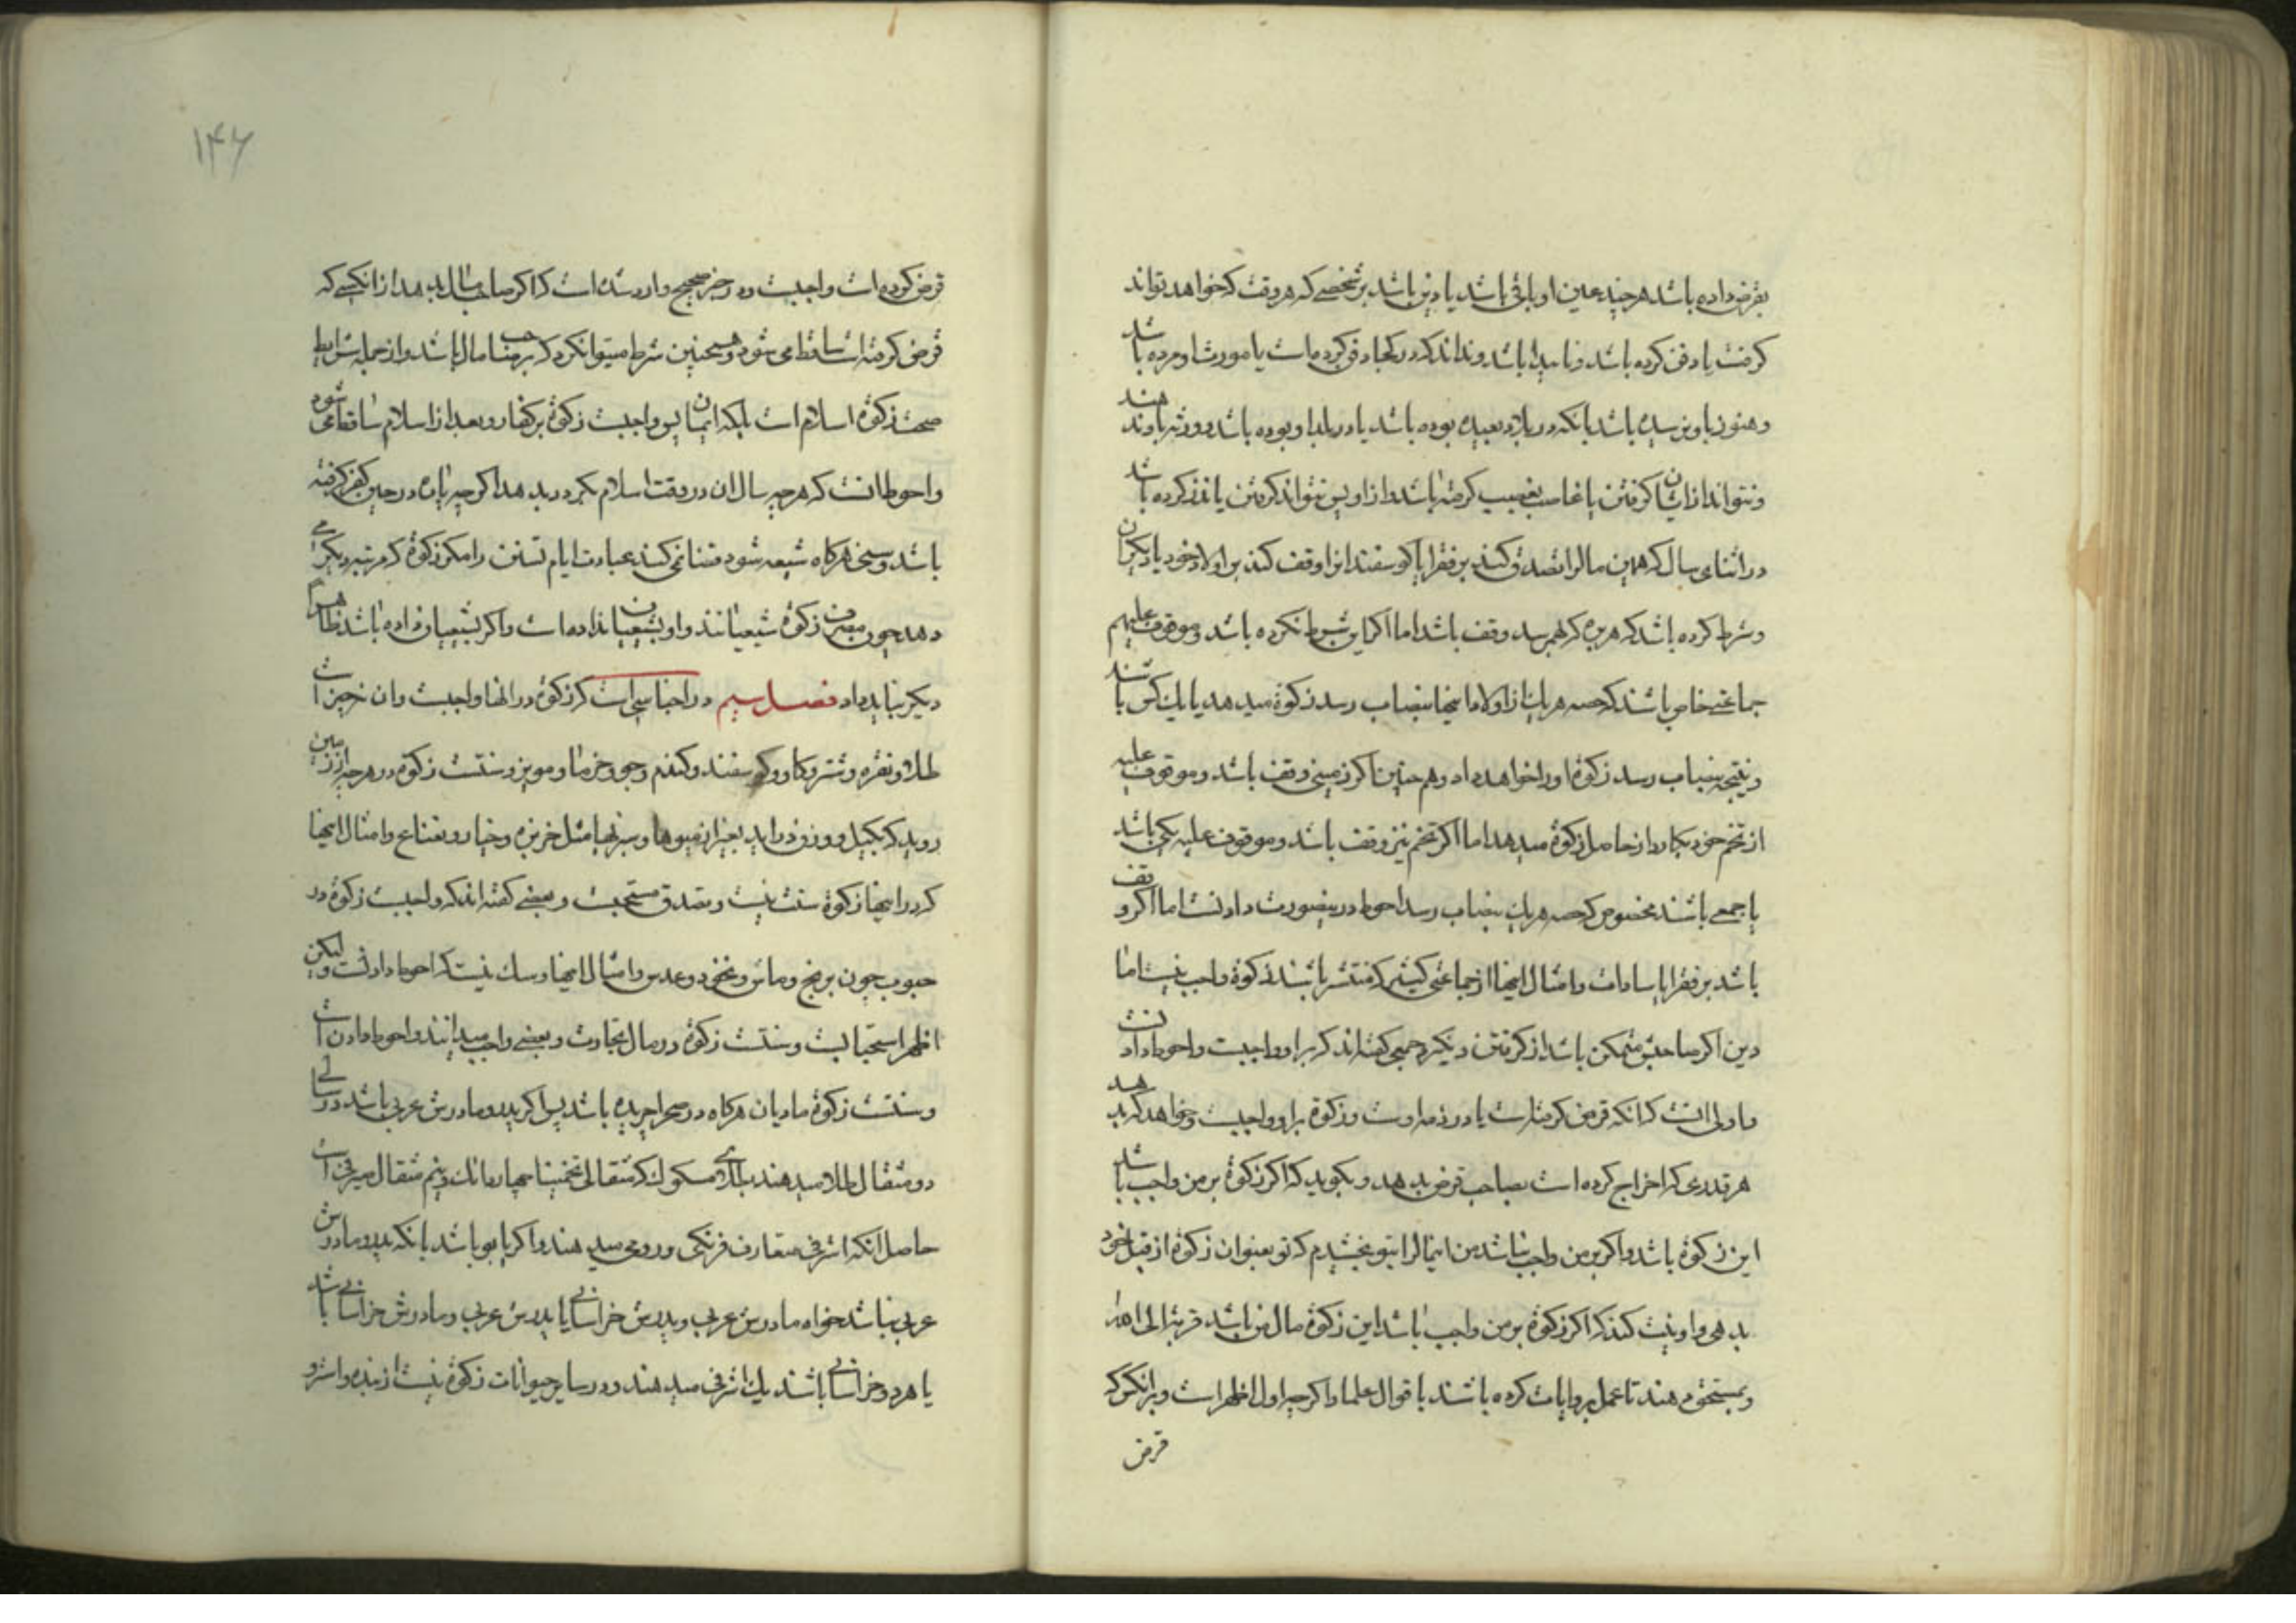 بقرض داده باشد هر چند عین او باقی باشد یا دین باشد بر شخصی که هر وقت که خواهد تواند
کرفت یا دفن کرده باشد و ناپیدا باشد و نداند که در کجا دفن کرده است یا مورث او مرده باشد
و هنوز باو نرسیده باشد بانکه در بلاد بعیده بوده باشد یا در بلد او بوده باشد و ورثه باو ندهند
و نتواند از ایشان کرفتن یا غاصب بغصب کرفته باشد و از او پس نتواند کرفتن یا نذر کرده باشد
در اثنای سال که همین مال را تصدق کند بر فقرا یا کوسفندانرا وقف کند بر اولاد خود یا دیکران
و شرط کرده باشد که هر بره که بهم رسد وقف باشد اما اکر این شرط نکرده باشد و موقوف علیهم
جماعتی خاص باشند که حصه هر یك از اولاد اینها بنصاب رسد زکوة میدهد یا یك کس باشند
و نتیجه بنصاب رسد زکوة او را خواهد داد و هم چنین اکر زمینی وقف باشد و موقوف علیه
از تخم خود بکارد از حاصل زکوة میدهد اما اکر تخم نیز وقف باشد و موقوف علیه یکی باشد
یا جمعی باشند مخصوص که حصه هر یك بنصاب رسد احوط درینصورت دادنست اما اکر وقف
باشد بر فقرا یا سادات و امثال اینها از جماعتی کثیر که منتشر باشند زکوة واجب نیست اما
دین اکر صاحبش متمکن باشد از کرفتن دیکر جمعی کفته اند که بر او واجبست و احوط دادنست
و اولی انست که انکه قرض کرفته است یا در ذمه اوست و زکوة بر او واجبست و خواهد که بدهد
هر قدری که اخراج کرده است بصاحب قرض بدهد و بکوید که اکر زکوة بر من واجب باشد
این زکوة باشد و اکر بر من واجب نباشد من اینمال را بتو بخشیدم که تو بعنوان زکوة از قبل خود
بدهی و او نیت کند که اکر زکوة بر من واجب باشد این زکوة مال من باشد قربة الی الله
و بمستحق دهند تا عمل بروایات کرده باشند با قوال علما و اکر چه اول اظهر است و بر انکس که
قرض
۱۴۶
قرض کرده است واجبست و در خبر صحیح وارد شده است که اکر صاحب مال بدهد از انکسی که
قرض کرفته است ساقط می شود و همچنین شرط میتوان کرد که بر صاحب مال باشد و از جمله شرایط
صحت زکوة اسلام است بلکه ایمان پس واجبست زکوة بر کفار و بعد از اسلام ساقط می شود
و احوط انست که هر چه سال ان در وقت اسلام بکردد بدهد اکر چه پاره در حین کفر کرفته
باشد و سنی هرکاه شیعه شود قضا نمی کند عبادت ایام تسنن را مکر زکوة که مرتبه دیکر می
دهد چون مصرف زکوة شیعیانند و او بشیعیان نداده است و اکر بشیعیان داده باشد ظاهرا
دیکر نباید داد فصل سیم در اجناسی است که زکوة در انها واجبست و ان نه چیز است
طلا و نقره و شتر و کاو و کوسفند و کندم و جو و خرما و مویز و سنتست زکوة در هر چه از زمین
روید که بکیل و وزن در اید بغیر از میوها و سبزیها مثل خربزه و خیار و نعناع و امثال اینها
که در اینها زکوة سنت نیست و تصدق مستحبست و بعضی کفته اند که واجبست زکوة در
حبوب چون برنج و ماش و نخود و عدس و امثال اینها و شك نیست که احوط دادنست و لیکن
اظهر استحبابست و سنتست زکوة در مال تجارت و بعضی واجب میدانند و احوط دادن است
و سنتست زکوة مادیان هرکاه در صحرا چریده باشد پس اکر پدر و مادرش عربی باشد در سالی
دو مثقال طلا میدهند بطلای مسکوك که مثقالی تخمینا چهار دانك و نیم مثقال صیرفی است
حاصل انکه اشرفی متعارف فرنکی و رومی میدهند و اکر یابو باشد بانکه پدر و مادرش
عربی نباشد خواه مادرش عربی و پدرش خراسانی یا پدرش عربی و مادرش خراسانی باشد
یا هر دو خراسانی باشند یك اشرفی میدهند و در سایر حیوانات زکوة نیست از بنده و استر و